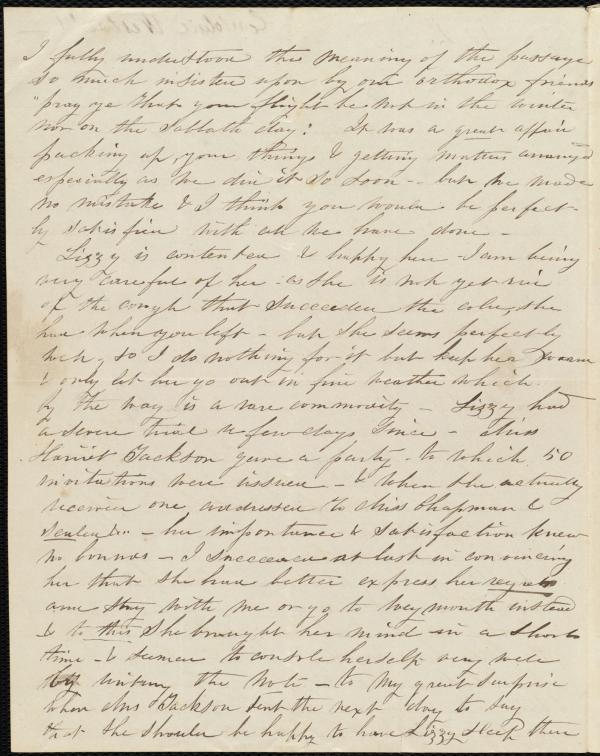 I fully understood the meaning of the passage
so much insisted upon by our orthodox friends
"pray ye that your flight be not in the winter
nor on the Sabbath day: It was a great affair
packing up, your things & getting matters arranged
especially as we did it so soon - but we made
no mistake & I think you would be perfect-
ly satisfied with all we have done -
Lizzy is contented & happy here - I am being
very careful of her - as she is not yet rid
of the cough that succeeded the cold, she
had when you left - but she seems perfectly
well, so I do nothing for it but keep her warm
& only let her go out in fine weather which
by the way is a rare commodity - Lizzy had
a severe trial a few days since - Miss
Harriet Jackson gave a party - to which 50
invitations were issued - & when she actually
received one addressed to Miss Chapman &
sealed - her importance & satisfaction knew
no bounds - I succeeded at last in convincing
her that she had better express her regrets
and stay with me or go to Weymouth instead
& to this she brought her mind in a short
time - & seemed to console herself very well
by writing the note - to my great surprise
when Mrs Jackson sent the next day to say
that she should be happy to have Lizzy sleep there